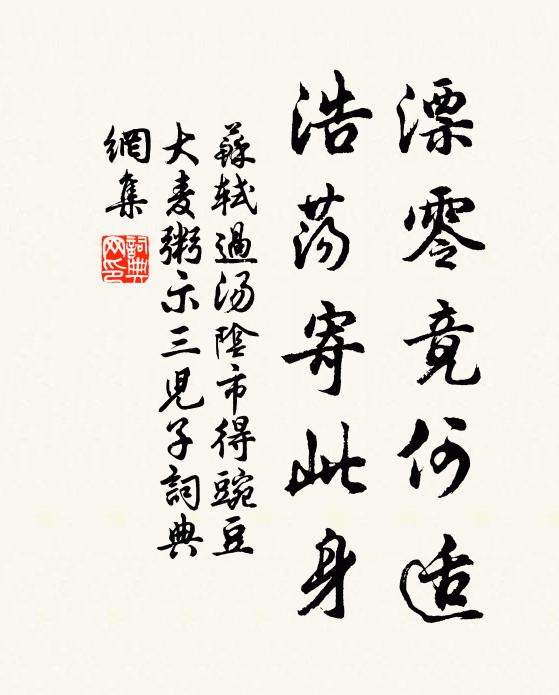 漂零竟何适
浩荡寄此身
蘇軾過汤陰市得豌豆
大麦粥示三児子詞典
網集
詞典
网印